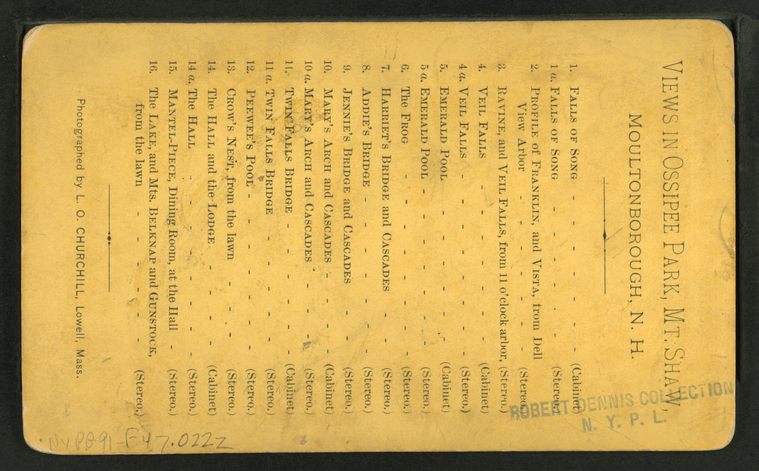 VIEWS IN OSSIPEE PARK, MT. SHAW,
MOULTONBOROUGH, N. H.
1. FALLS OF SONG - - - - - - (Cabinet)
1 a. FALLS OF SONG - - - - - - (Stereo.)
2. PROFILE OF FRANKLIN, and VISTA, from Dell
View Arbor - - - - - - (Stereo.)
3. RAVINE, and VEIL FALLS, from 11 o'clock arbor, (Stereo.)
4. VEIL FALLS - - - - - - (Cabinet)
4 a. VEIL FALLS - - - - - - (Stereo.)
5. EMERALD POOL - - - - - - (Cabinet)
5 a. EMERALD POOL - - - - - - (Stereo.)
6. The FROG - - - - - - (Stereo.)
7. HARRIET'S BRIDGE and CASCADES - - - (Stereo.)
8. ADDIE'S BRIDGE - - - - - - (Stereo.)
9. JENNIE'S BRIDGE and CASCADES - - - (Stereo.)
10. MARY'S ARCH and CASCADES - - - - (Cabinet)
10 a. MARY'S ARCH and CASCADES - - - - (Stereo.)
11. TWIN FALLS BRIDGE - - - - - (Cabinet)
11 a. TWIN FALLS BRIDGE - - - - - (Stereo.)
12. PEEWEE'S POOL - - - - - - (Stereo.)
13. CROW'S NEST, from the lawn - - - - (Stereo.)
14. The HALL and the LODGE - - - - (Cabinet)
14 a. The HALL - - - - - - (Stereo.)
15. MANTEL-PIECE, Dining Room, at the Hall - - (Stereo.)
16. The LAKE, and Mts. BELKNAP and GUNSTOCK,
from the lawn - - - - - - (Stereo.)
Photographed by L. O. CHURCHILL, Lowell, Mass.
ROBERT DENNIS COLLECTION
N. Y. P. L.
NYPG91-F47.022Z